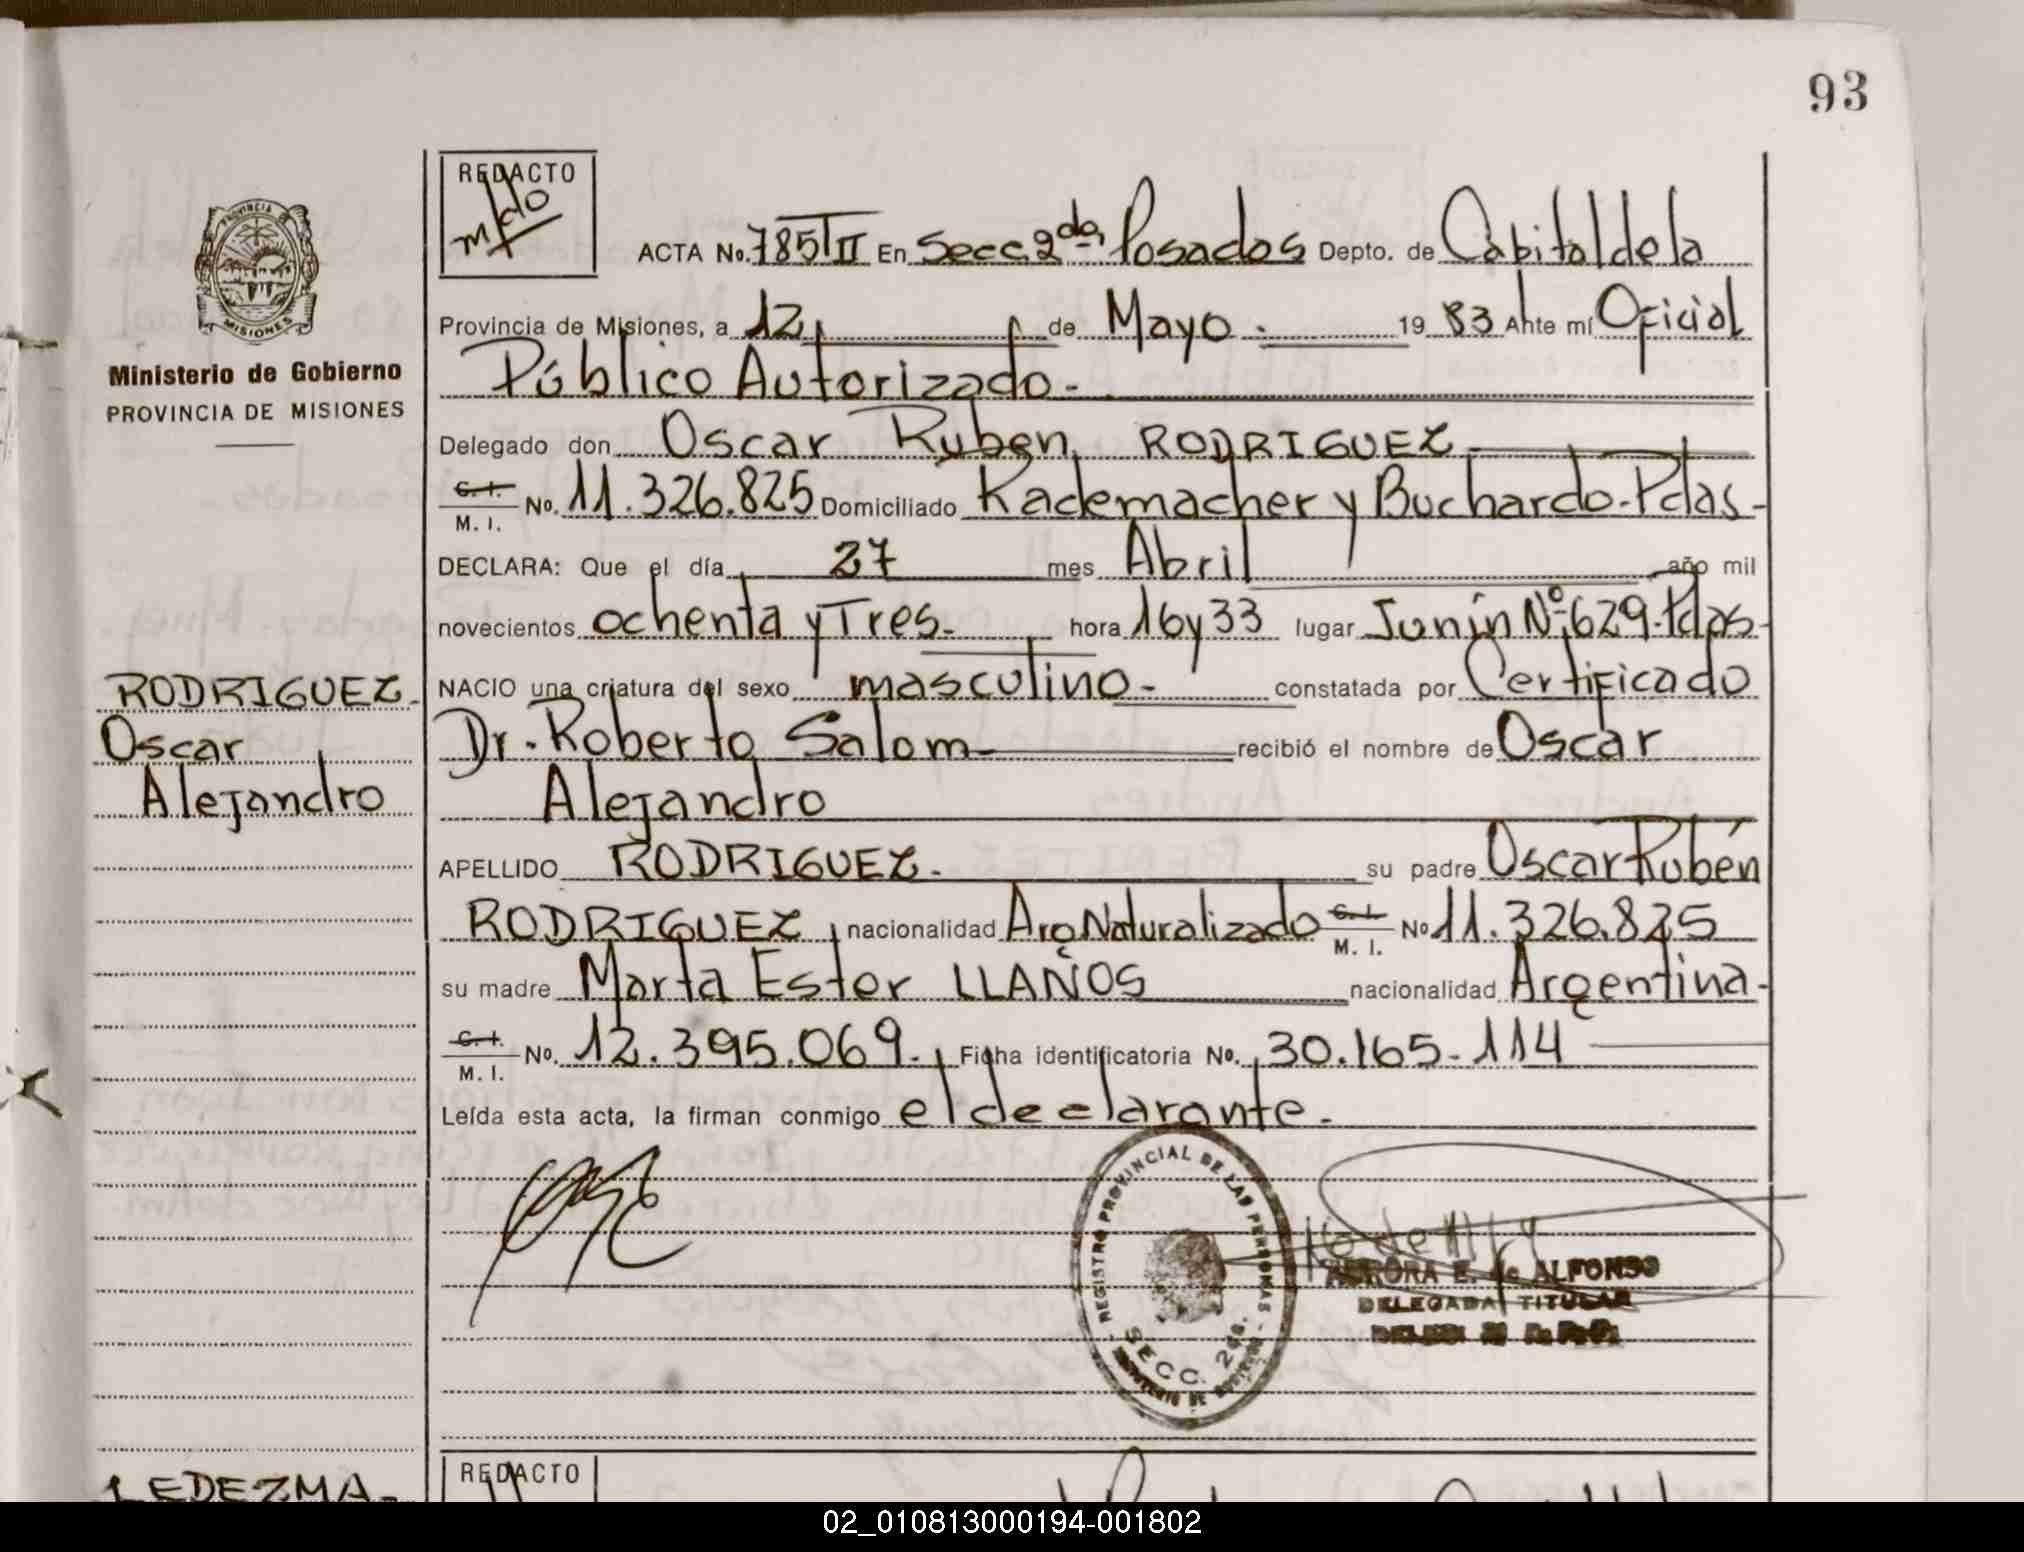 93
REDACTO
ACTA No. 785 T II En Secc. 2da. Posadas Depto. de Capital de la
PROVINCIA
MISIONES
Provincia de Misiones, a 12 de Mayo. 19 83 Ante mí Oficial
Ministerio de Gobierno
PROVINCIA DE MISIONES
Público Autorizado-
Delegado don Oscar Ruben RODRIGUEZ
C. I.
M. I. No. 11.326.825 Domiciliado Rademacher y Buchardo-Pdas-
DECLARA: Que el día 27 mes Abril año mil
novecientos ochenta y Tres- hora 16 y 33 lugar Junín Nº 629-Pdas-
NACIO una criatura del sexo masculino- constatada por Certificado
Dr. Roberto Salom recibió el nombre de Oscar
Alejandro
RODRIGUEZ
Oscar
Alejandro
APELLIDO RODRIGUEZ- su padre Oscar Rubén
RODRIGUEZ nacionalidad Arg Naturalizado C. I.
M. I. No 11.326.825
su madre Marta Ester LLAÑOS nacionalidad Argentina-
C. I.
M. I. No. 12.395.069- Ficha identificatoria No. 30.165-114
Leída esta acta, la firman conmigo el declarante-
REGISTRO PROVINCIAL DE LAS PERSONAS
SECC. 2da.
MINISTERIO DE GOBIERNO
AURORA E. de ALFONSO
DELEGADA TITULAR
LEDEZMA-
REDACTO
02_010813000194-001802